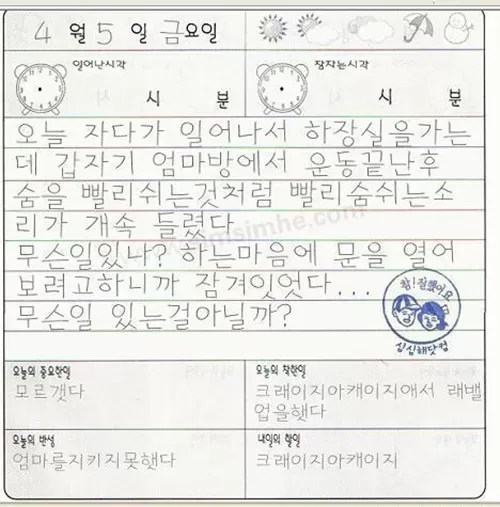 4 월 5 일 금요일
일어난시각
잠자는시각
시 분
시 분
오늘 자다가 일어나서 하장실을가는
데 갑자기 엄마방에서 운동끝난후
숨을 빨리쉬는것처럼 빨리숨쉬는소
리가 개속 들렸다
무슨일있나? 하는마음에 문을 열어
보려고하니까 잠겨잇었다...
무슨일 있는걸아닐까?
참! 잘했어요
심심해닷컴
오늘의 중요한일
모르겟다
오늘의 착한일
크래이지아캐이지애서 래밸
업을햇다
오늘의 반성
엄마를지키지못햇다
내일의 할일
크래이지아캐이지